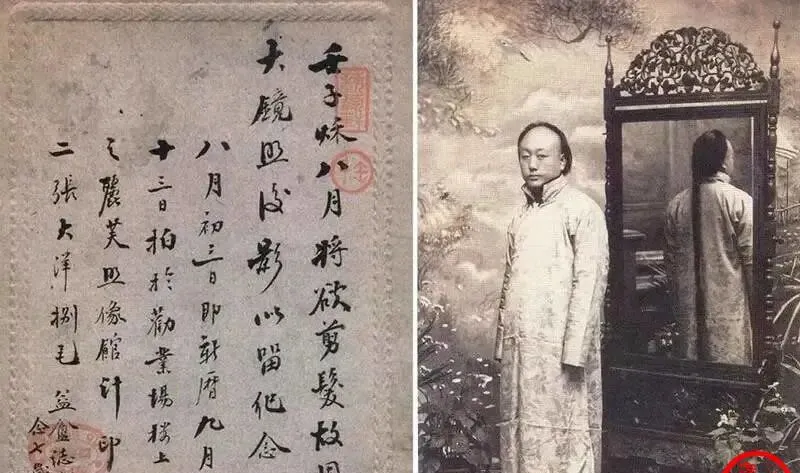 壬子秌八月將欲剪髮故用
大鏡照後影以留紀念
八月初三日即新曆九月
十三日拍於勸業場樓上
之麗芙照像館計印
二張大洋捌毛 益盦誌
念七